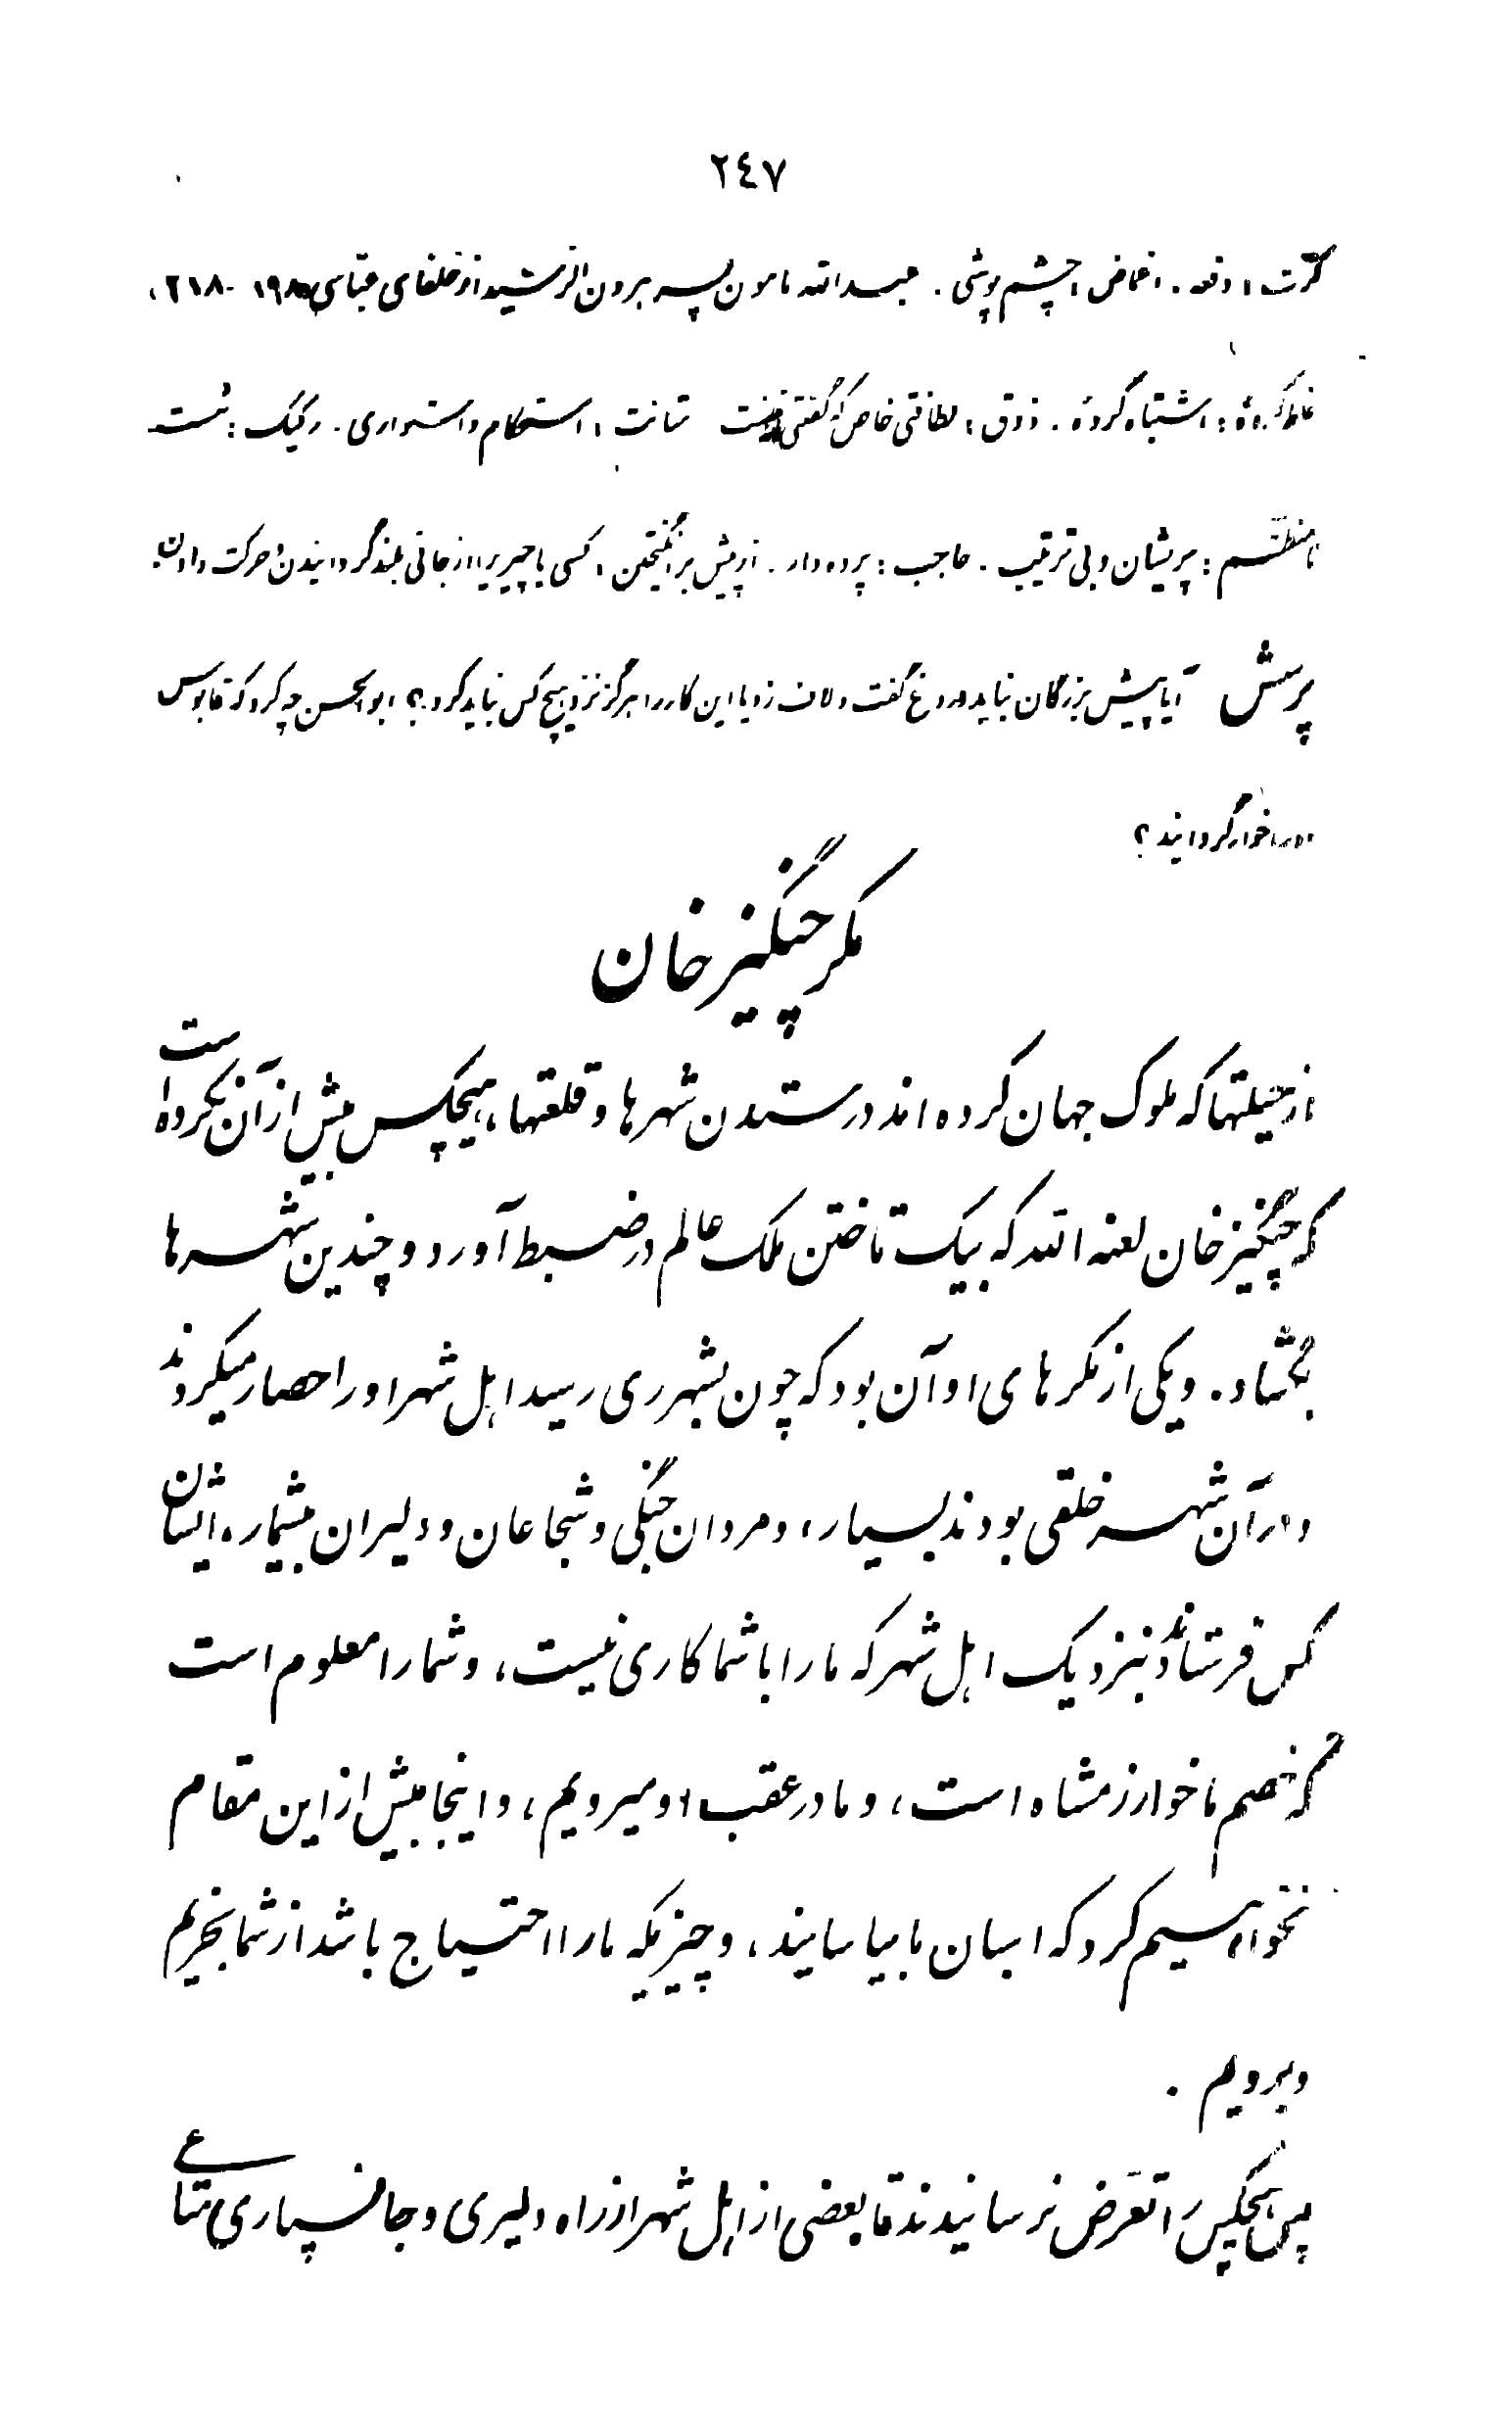 ۲٤۷
کرّت: دفعه. اغماض: چشم‌پوشی. عبدالله مامون پسر هرون الرشید از خلفای عباسی ۱۹۸ - ۲۱۸.
غلط کرده: اشتباه کرده. ذوق: لطافتی خاص که گفتنی نیست متانت: استحکام و استواری. رکیک: سست
نامنظم: پریشان و بی ترتیب. حاجب: پرده‌دار. از پیش برانگیختن: کسی یا چیزی را از جائی بلند گردانیدن و حرکت دادن.
پرسش آیا پیش بزرگان نباید دروغ گفت و لاف زد یا این کار را هرگز نزد هیچ کس نباید کرد؟ ابوالحسن چه کرد که قابوس
او را خوار گردانید؟
مکر چنگیز خان
از حیلتها که ملوک جهان کرده‌اند در ستدن شهرها و قلعتها، هیچکس بیش از آن نکرده است
که چنگیز خان لعنه الله که بیک تاختن ملک عالم در ضبط آورد و چندین شهرها
بگشاد. و یکی از مکرهای او آن بود که چون بشهر ری رسید اهل شهر او را حصار میکردند
و در آن شهر خلقی بودند بسیار، و مردان جنگی و شجاعان و دلیران بیشمار، ایشان
کس فرستادند بنزدیک اهل شهر که ما را با شما کاری نیست، و شما را معلوم است
که خصم ما خوارزمشاه است، و ما در عقب او میرویم، و اینجا بیش از این مقام
نخواهیم کرد که اسبان ما بیاسایند، و چیزیکه ما را احتیاج باشد از شما بخریم
و برویم.
پس هیچکس را تعرّض نرسانیدند تا بعضی از اهل شهر از راه دلیری و جانسپاری متاع